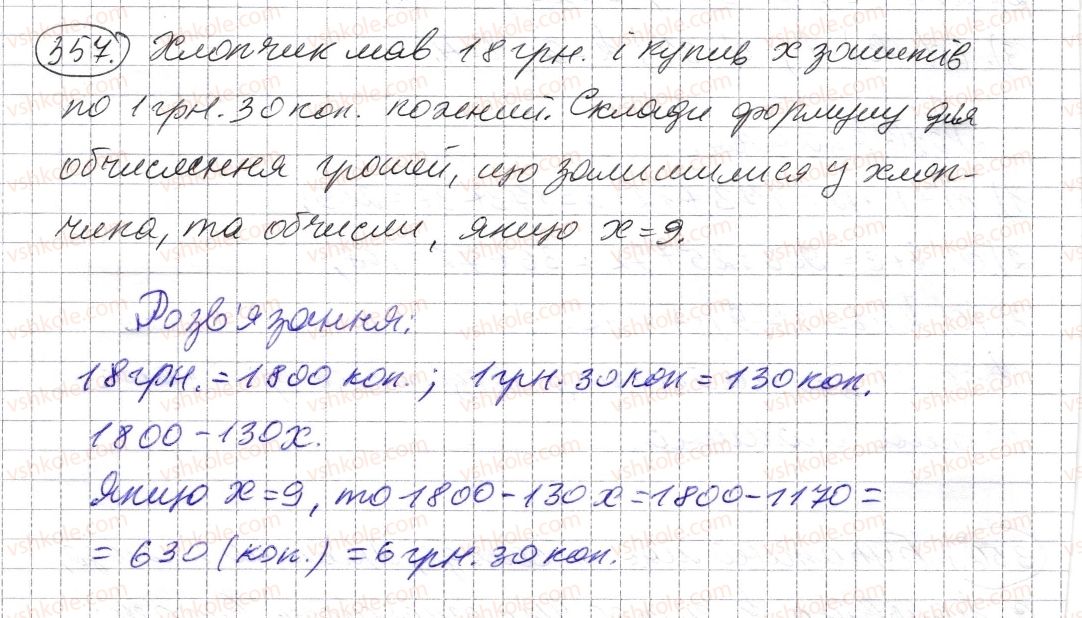 357. Хлопчик мав 18 грн. і купив х зошитів
по 1 грн. 30 коп. кожний. Склади формулу для
обчислення грошей, що залишилися у хлоп-
чика, та обчисли, якщо х = 9.
Розв'язання:
18 грн. = 1800 коп.; 1 грн. 30 коп = 130 коп.
1800 - 130х.
Якщо х = 9, то 1800 - 130х = 1800 - 1170 =
= 630 (коп.) = 6 грн. 30 коп.